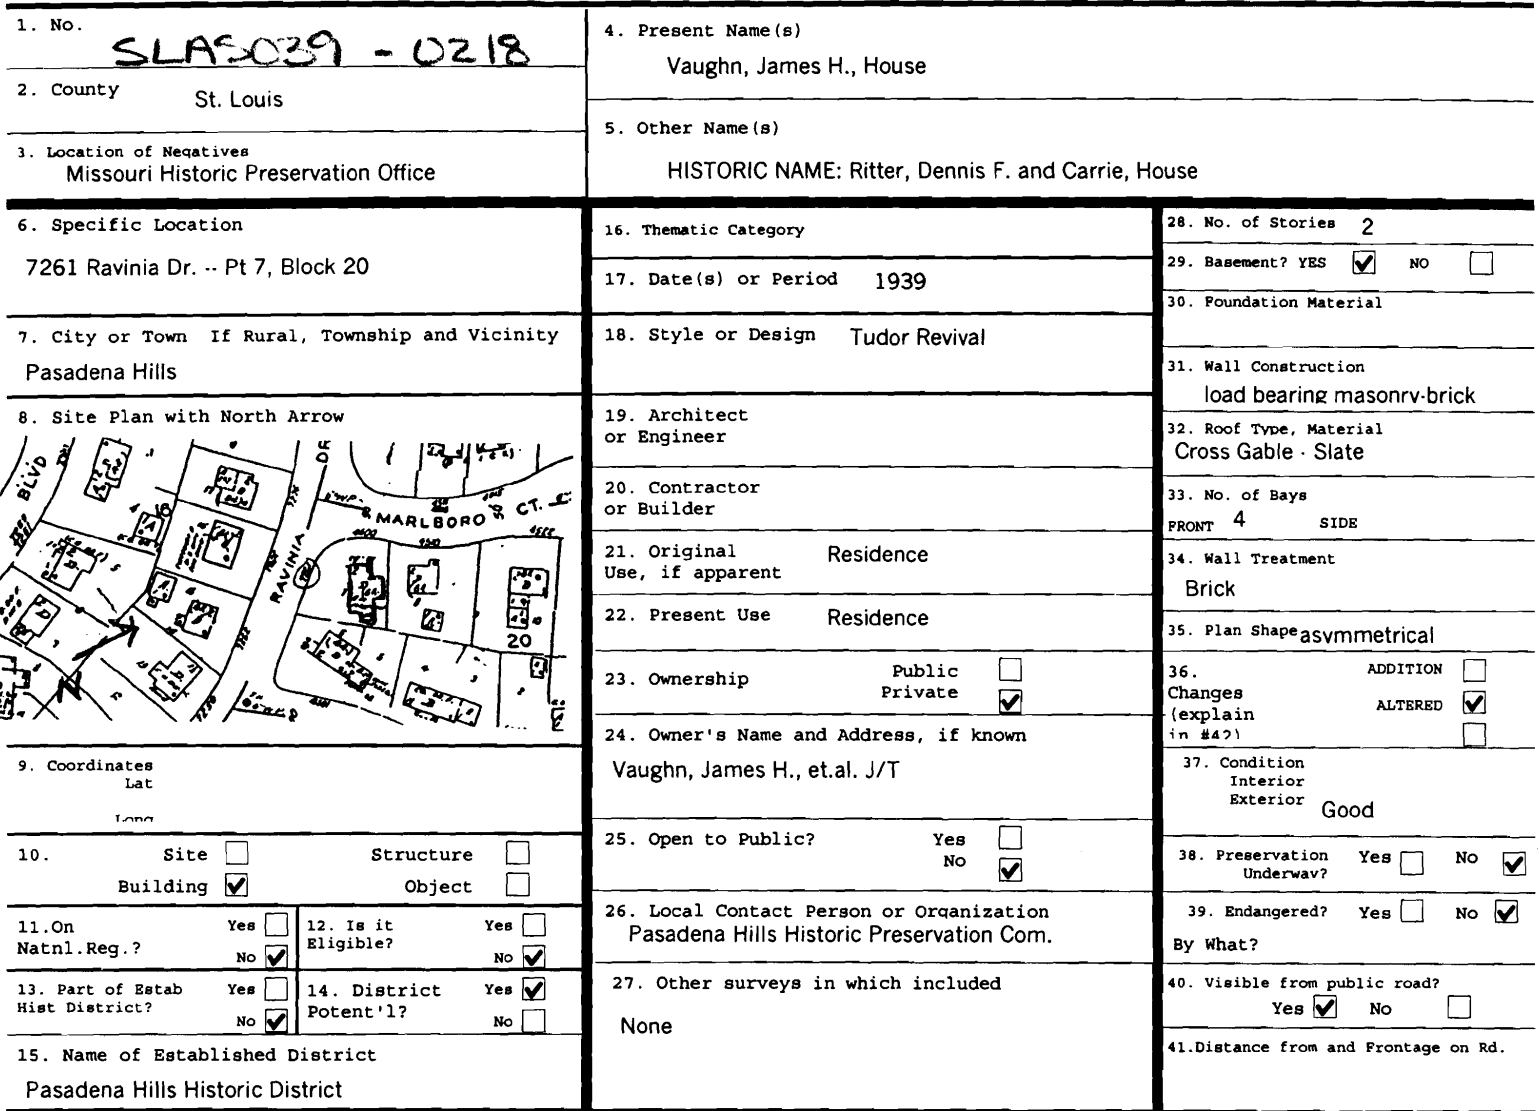 1. No.
SLAS039 - 0218
2. County St. Louis
3. Location of Negatives
Missouri Historic Preservation Office
4. Present Name(s)
Vaughn, James H., House
5. Other Name(s)
HISTORIC NAME: Ritter, Dennis F. and Carrie, House
6. Specific Location
7261 Ravinia Dr. -- Pt 7, Block 20
7. City or Town If Rural, Township and Vicinity
Pasadena Hills
8. Site Plan with North Arrow
BLVD
DR
RAVINIA
MARLBORO CT.
18
20
N
9. Coordinates
Lat
Long
10. Site Structure
Building Object
11.On Yes
Natnl.Reg.? No
12. Is it Yes
Eligible? No
13. Part of Estab Yes
Hist District? No
14. District Yes
Potent'l? No
15. Name of Established District
Pasadena Hills Historic District
16. Thematic Category
17. Date(s) or Period 1939
18. Style or Design Tudor Revival
19. Architect
or Engineer
20. Contractor
or Builder
21. Original Residence
Use, if apparent
22. Present Use Residence
23. Ownership Public
Private
24. Owner's Name and Address, if known
Vaughn, James H., et.al. J/T
25. Open to Public? Yes
No
26. Local Contact Person or Organization
Pasadena Hills Historic Preservation Com.
27. Other surveys in which included
None
28. No. of Stories 2
29. Basement? YES NO
30. Foundation Material
31. Wall Construction
load bearing masonry-brick
32. Roof Type, Material
Cross Gable - Slate
33. No. of Bays
FRONT 4 SIDE
34. Wall Treatment
Brick
35. Plan Shape asymmetrical
36. ADDITION
Changes
(explain ALTERED
in #42)
37. Condition
Interior
Exterior Good
38. Preservation Yes No
Underway?
39. Endangered? Yes No
By What?
40. Visible from public road?
Yes No
41.Distance from and Frontage on Rd.